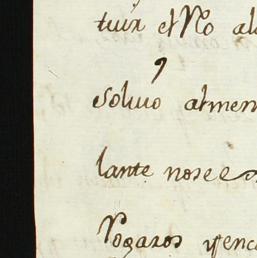 tuir el No al
soluo almen
lante nose e
Pogaros yenc